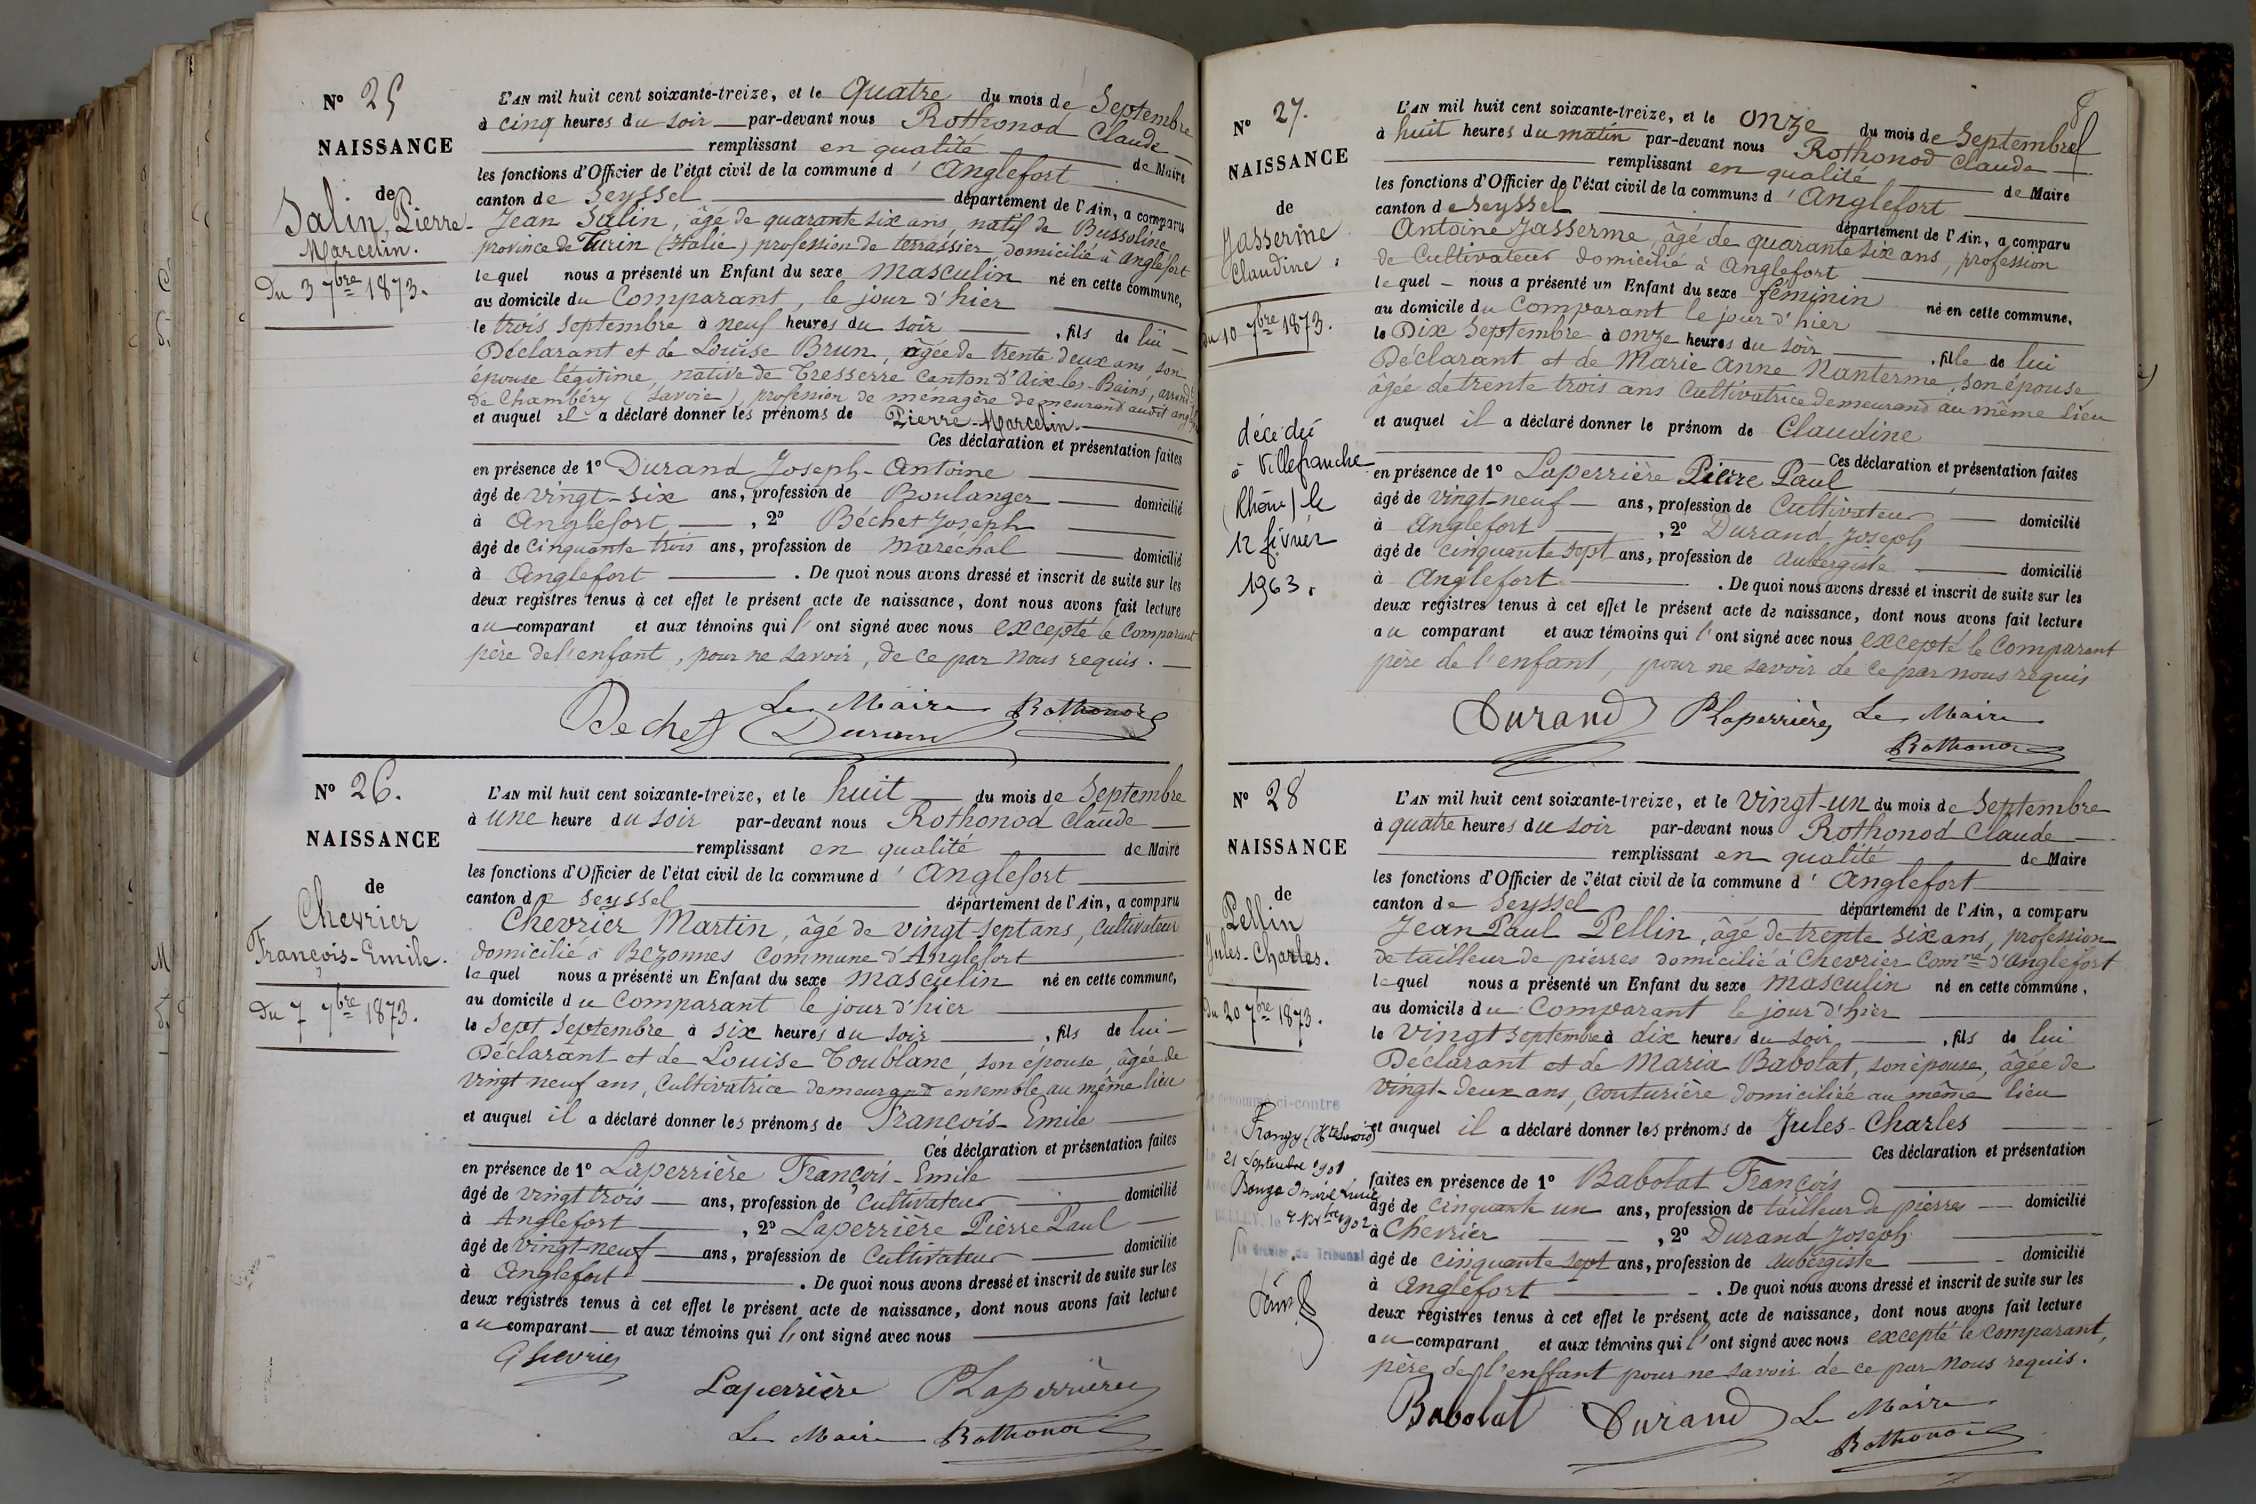 N° 25
NAISSANCE
de
Salin, Pierre-
Marcelin.
Du 3 7bre 1873.
L'AN mil huit cent soixante-treize, et le Quatre du mois de Septembre
à cinq heures du soir par-devant nous Rothonod Claude
remplissant en qualité de Maire
les fonctions d'Officier de l'état civil de la commune d' Anglefort
canton de Seyssel département de l'Ain, a comparu
Jean Salin, âgé de quarante six ans, natif de Bussoline
province de Turin (Italie) profession de terrassier, domicilié à Anglefort
lequel nous a présenté un Enfant du sexe masculin né en cette commune,
au domicile du Comparant, le jour d'hier
le trois Septembre à neuf heures du soir, fils de lui
Déclarant et de Louise Brun, âgée de trente deux ans, son
épouse légitime, native de Tresserre Canton d'Aix-les-Bains, arrondt
de Chambéry (Savoie), profession de ménagère demeurand audit
et auquel il a déclaré donner les prénoms de Pierre-Marcelin.
Ces déclaration et présentation faites
en présence de 1° Durand Joseph-Antoine
âgé de vingt-six ans, profession de Boulanger domicilié
à Anglefort, 2° Béchet Joseph
âgé de cinquante trois ans, profession de maréchal domicilié
à Anglefort. De quoi nous avons dressé et inscrit de suite sur les
deux registres tenus à cet effet le présent acte de naissance, dont nous avons fait lecture
au comparant et aux témoins qui l'ont signé avec nous excepté le Comparant
père de l'enfant, pour ne savoir, de ce par nous requis.
Le Maire Rothonod
Bechet Durand
N° 26.
NAISSANCE
de
Chevrier
François-Emile.
Du 7 7bre 1873.
L'AN mil huit cent soixante-treize, et le huit du mois de Septembre
à une heure du soir par-devant nous Rothonod Claude
remplissant en qualité de Maire
les fonctions d'Officier de l'état civil de la commune d' Anglefort
canton de Seyssel département de l'Ain, a comparu
Chevrier Martin, âgé de vingt-sept ans, Cultivateur
domicilié à Bezonnes Commune d'Anglefort
lequel nous a présenté un Enfant du sexe masculin né en cette commune,
au domicile du Comparant le jour d'hier
le Sept Septembre à six heures du soir, fils de lui
Déclarant et de Louise Toublanc, son épouse, âgée de
vingt neuf ans, Cultivatrice demeurand ensemble au même lieu
et auquel il a déclaré donner les prénoms de François-Emile
Ces déclaration et présentation faites
en présence de 1° Laperrière François-Emile
âgé de vingt trois ans, profession de Cultivateur domicilié
à Anglefort, 2° Laperrière Pierre Paul
âgé de vingt-neuf ans, profession de Cultivateur domicilié
à Anglefort. De quoi nous avons dressé et inscrit de suite sur les
deux registres tenus à cet effet le présent acte de naissance, dont nous avons fait lecture
au comparant et aux témoins qui l'ont signé avec nous
Chevrier
Laperrière PLaperrière
Le Maire Rothonod
8
N° 27.
NAISSANCE
de
Jasserme
Claudine.
du 10 7bre 1873.
décédée
à Villefranche
(Rhône) le
12 février
1963.
L'AN mil huit cent soixante-treize, et le onze du mois de Septembre
à huit heures du matin par-devant nous Rothonod Claude
remplissant en qualité de Maire
les fonctions d'Officier de l'état civil de la commune d' Anglefort
canton de Seyssel département de l'Ain, a comparu
Antoine Jasserme, âgé de quarante six ans, profession
de Cultivateur domicilié à Anglefort
lequel nous a présenté un Enfant du sexe féminin né en cette commune,
au domicile du Comparant le jour d'hier
le Dix Septembre à onze heures du soir, fille de lui
Déclarant et de Marie Anne Nanterme, son épouse
âgée de trente trois ans Cultivatrice demeurand au même lieu
et auquel il a déclaré donner le prénom de Claudine
Ces déclaration et présentation faites
en présence de 1° Laperrière Pierre Paul
âgé de vingt-neuf ans, profession de Cultivateur domicilié
à Anglefort, 2° Durand Joseph
âgé de cinquante sept ans, profession de aubergiste domicilié
à Anglefort. De quoi nous avons dressé et inscrit de suite sur les
deux registres tenus à cet effet le présent acte de naissance, dont nous avons fait lecture
au comparant et aux témoins qui l'ont signé avec nous excepté le Comparant
père de l'enfant, pour ne savoir de ce par nous requis
Durand PLaperrière Le Maire
Rothonod
N° 28
NAISSANCE
de
Pellin
Jules-Charles.
du 20 7bre 1873.
dénommé ci-contre
Frangy (Hte Savoie)
21 Septembre 1901
4 Nbre 1902
le Greffier du Tribunal
L'AN mil huit cent soixante-treize, et le Vingt-un du mois de Septembre
à quatre heures du soir par-devant nous Rothonod Claude
remplissant en qualité de Maire
les fonctions d'Officier de l'état civil de la commune d' Anglefort
canton de Seyssel département de l'Ain, a comparu
Jean Paul Pellin, âgé de trente six ans, profession
de tailleur de pierres domicilié à Chevrier Comne d'Anglefort
lequel nous a présenté un Enfant du sexe masculin né en cette commune,
au domicile du Comparant le jour d'hier
le Vingt Septembre à dix heures du soir, fils de lui
Déclarant et de Maria Babolat, son épouse, âgée de
vingt-deux ans, couturière domiciliée au même lieu
et auquel il a déclaré donner les prénoms de Jules-Charles
Ces déclaration et présentation
faites en présence de 1° Babolat François
âgé de cinquante un ans, profession de tailleur de pierres domicilié
à Chevrier, 2° Durand Joseph
âgé de cinquante sept ans, profession de aubergiste domicilié
à Anglefort. De quoi nous avons dressé et inscrit de suite sur les
deux registres tenus à cet effet le présent acte de naissance, dont nous avons fait lecture
au comparant et aux témoins qui l'ont signé avec nous excepté le Comparant,
père de l'enffant pour ne savoir de ce par nous requis.
Babolat Durand Le Maire
Rothonod